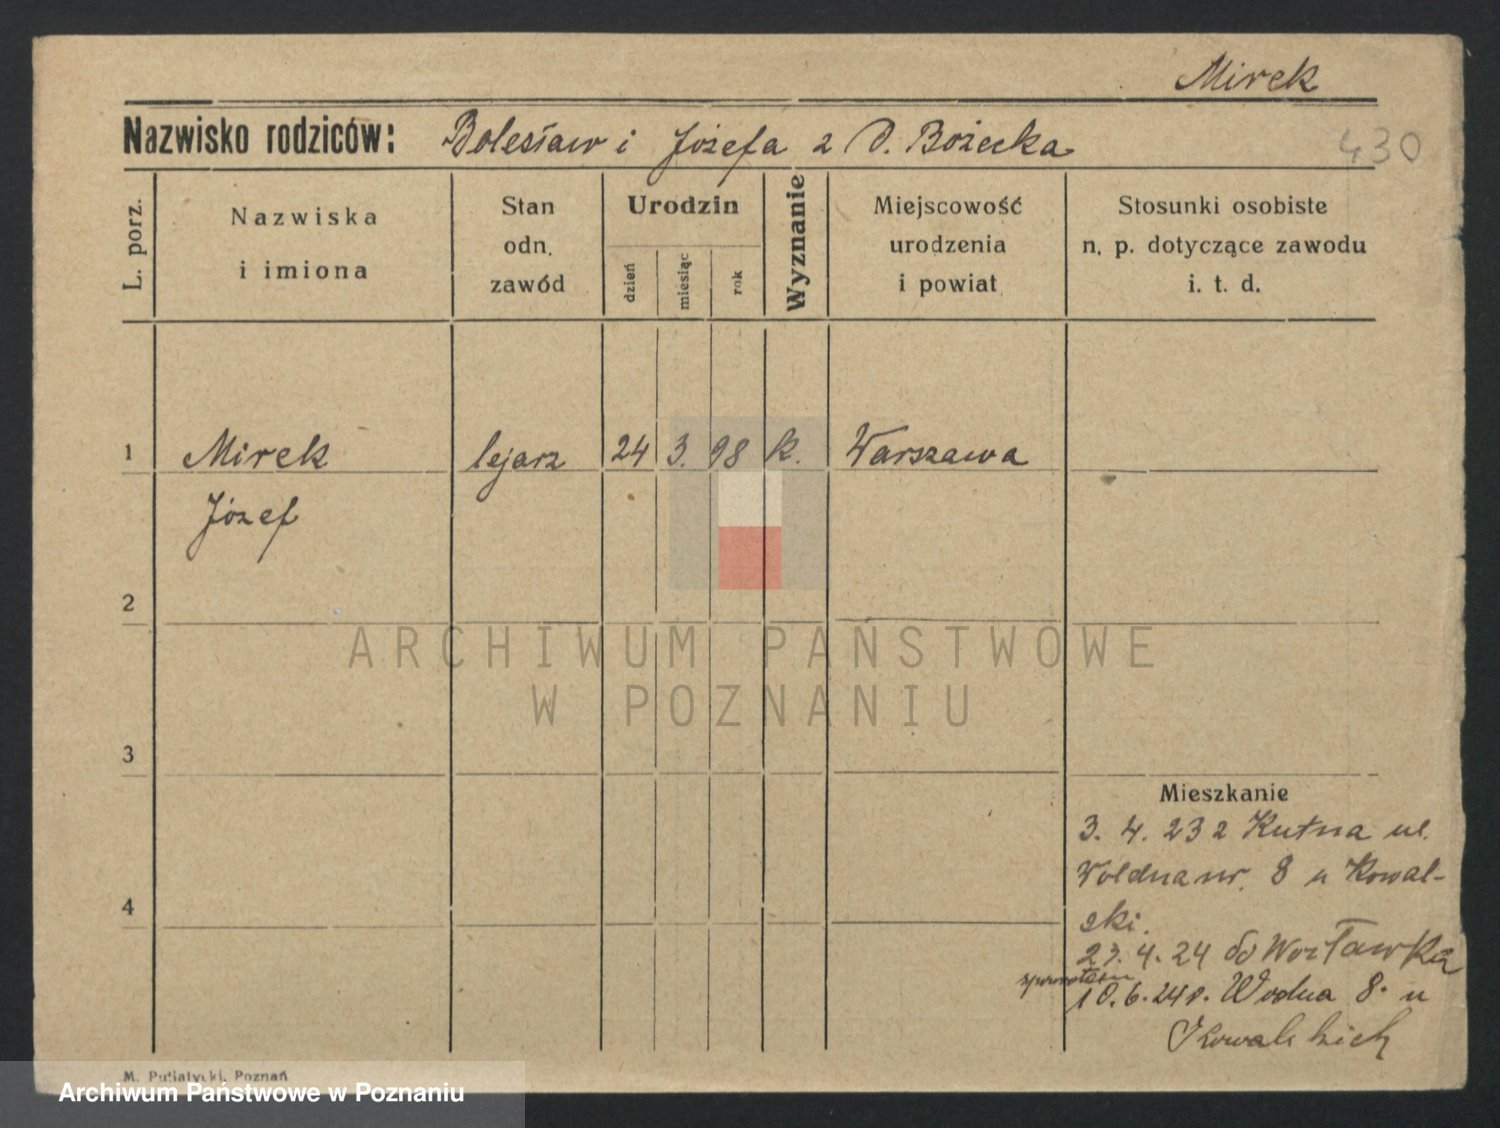 Mirek
Nazwisko rodziców: Bolesław i Józefa z D. Bożecka
430
L. porz.
Nazwiska
i imiona
Stan
odn.
zawód
Urodzin
dzień
miesiąc
rok
Wyznanie
Miejscowość
urodzenia
i powiat
Stosunki osobiste
n. p. dotyczące zawodu
i. t. d.
1 Mirek lejarz 24 3. 98 k. Warszawa
Józef
2
ARCHIWUM PAŃSTWOWE
W POZNANIU
3
Mieszkanie
3. 4. 23 z Kutna ul.
nr. 8 u Kowal-
4
ski.
23. 4. 24 do
10. 6. 24 r. Wodna 8. u
Kowalskich
M. Putiatycki, Poznań
Archiwum Państwowe w Poznaniu